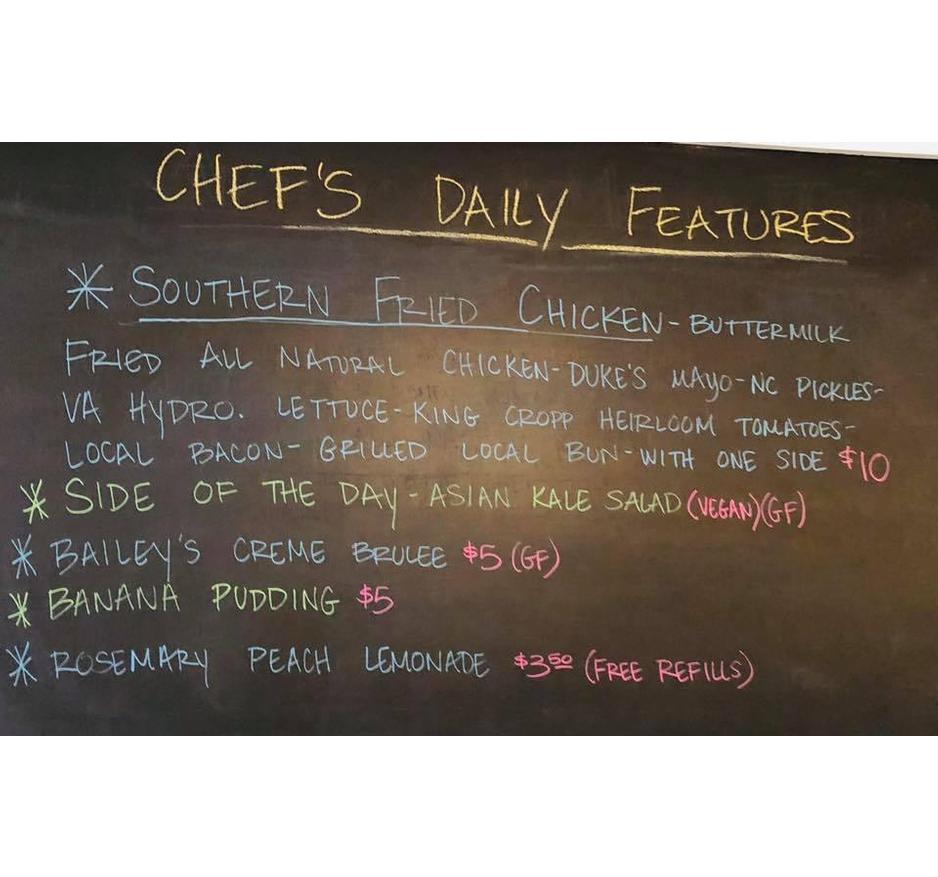 CHEF'S DAILY FEATURES
* SOUTHERN FRIED CHICKEN - BUTTERMILK
FRIED ALL NATURAL CHICKEN - DUKE'S MAYO - NC PICKLES -
VA HYDRO. LETTUCE - KING CROPP HEIRLOOM TOMATOES -
LOCAL BACON - GRILLED LOCAL BUN - WITH ONE SIDE $10
* SIDE OF THE DAY - ASIAN KALE SALAD (VEGAN)(GF)
* BAILEY'S CREME BRULEE $5 (GF)
* BANANA PUDDING $5
* ROSEMARY PEACH LEMONADE $3.50 (FREE REFILLS)